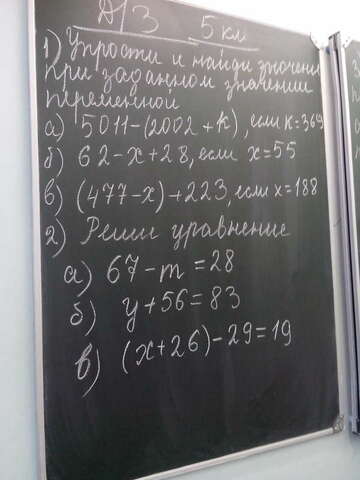 Д/З 5 кл
1) Упрости и найди значени
при заданном значении
переменной
а) 5011-(2002+k), если к=369
б) 62-x+28, если x=55
в) (477-x)+223, если x=188
2) Реши уравнение
а) 67-m=28
б) y+56=83
в) (x+26)-29=19